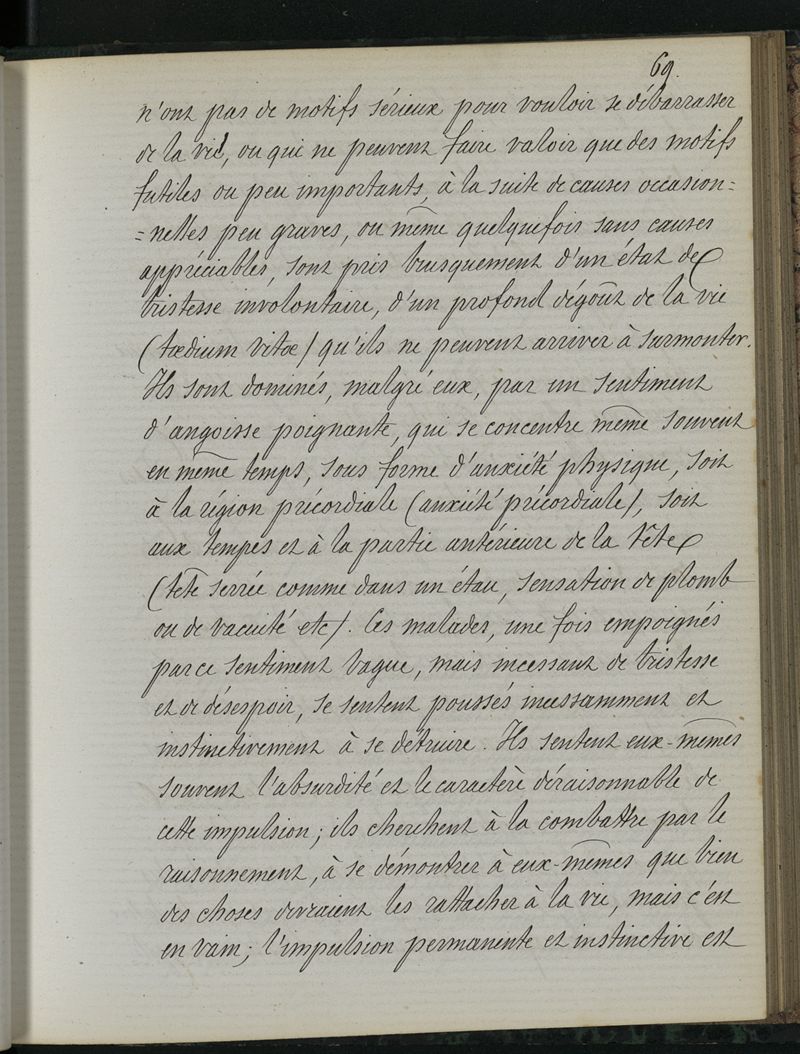 69.
n'ont pas de motifs sérieux pour vouloir se débarrasser
de la vie, ou qui ne peuvent faire valoir que des motifs
futiles ou peu importants, à la suite de causes occasion=
=nelles peu graves, ou même quelquefois sans causes
appréciables, sont pris brusquement d'un état de
tristesse involontaire, d'un profond dégoût de la vie
(tœdium vitœ) qu'ils ne peuvent arriver à surmonter.
Ils sont dominés, malgré eux, par un sentiment
d'angoisse poignante, qui se concentre même souvent
en même temps, sous forme d'anxiété physique, soit
à la région précordiale (anxiété précordiale), soit
aux tempes et à la partie antérieure de la tête
(tête serrée comme dans un étau, sensation de plomb
ou de vacuité etc). Ces malades, une fois empoignés
par ce sentiment vague, mais incessant de tristesse
et de désespoir, se sentent poussés incessamment et
instinctivement à se détruire. Ils sentent eux-mêmes
souvent l'absurdité et le caractère déraisonnable de
cette impulsion; ils cherchent à la combattre par le
raisonnement, à se démontrer à eux-mêmes que bien
des choses devraient les rattacher à la vie, mais c'est
en vain; l'impulsion permanente et instinctive est